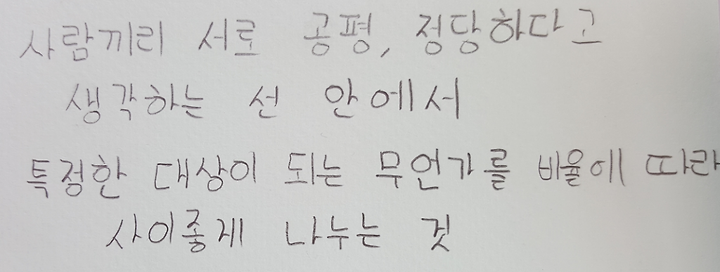 사람끼리 서로 공평, 정당하다고
생각하는 선 안에서
특정한 대상이 되는 무언가를 비율에 따라
사이좋게 나누는 것